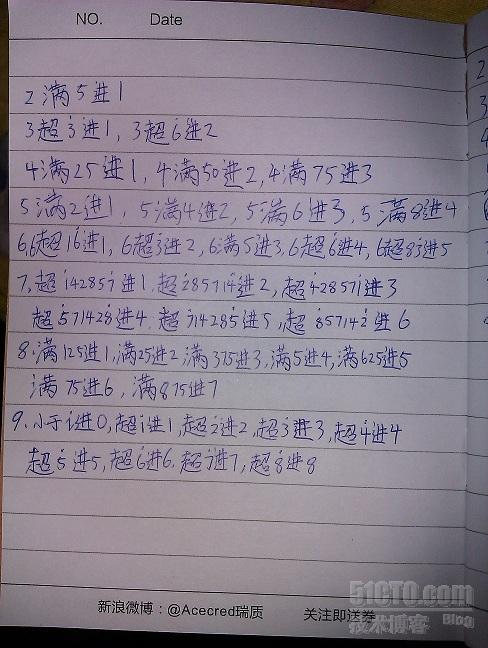 NO. Date
2 满5进1
3超3̇进1, 3超6̇进2
4满25进1, 4满50进2, 4满75进3
5满2进1, 5满4进2, 5满6进3, 5满8进4
6,6超16̇进1, 6超3̇进2, 6满5进3, 6超6̇进4, 6超83̇进5
7,超1̇42857̇进1, 超2̇85714̇进2, 超4̇28571̇进3
超5̇71428̇进4. 超7̇14285̇进5, 超8̇57142̇进6
8.满125进1,满25进2,满375进3,满5进4,满625进5
满75进6, 满875进7
9.小于1̇进0,超1̇进1,超2̇进2,超3̇进3,超4̇进4
超5̇进5,超6̇进6.超7̇进7,超8̇进8
新浪微博:@Acecred瑞质 关注即送券
51CTO.com
技术博客 Blog